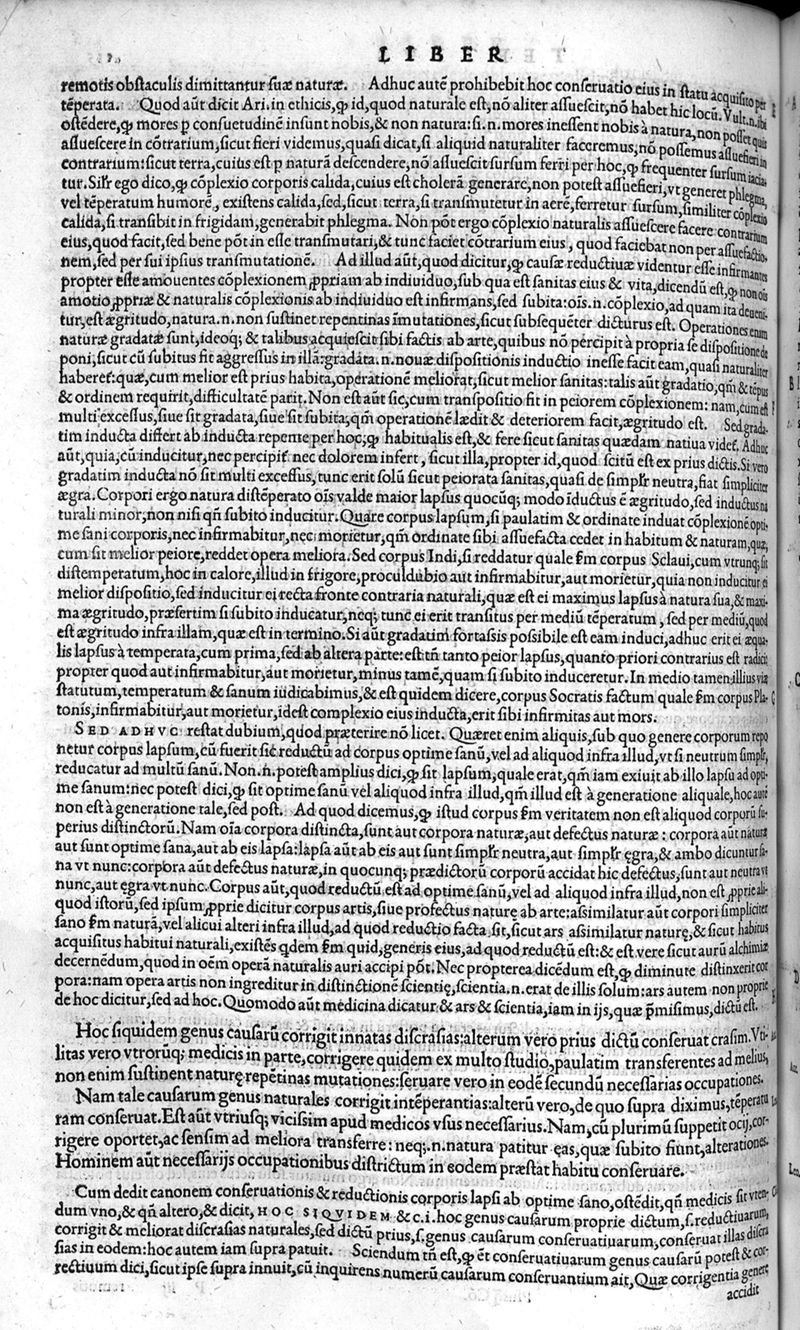 LIBER
remotis obstaculis dimittantur suæ naturæ. Adhuc autē prohibebit hoc conseruatio eius in statu acquisito per
tēperata. Quod aūt dicit Ari. in ethicis, ꝙ id, quod naturale est, nō aliter assuescit, nō habet hic locū. Vult.n.ibi
ostēdere, ꝙ mores p consuetudinē insunt nobis, & non natura: si.n.mores inessent nobis à natura, non posset quis
assuescere in cōtrarium, sicut fieri videmus, quasi dicat, si aliquid naturaliter faceremus, nō possemus assuefieri in
contrarium: sicut terra, cuius est p naturā descendere, nō assuescit sursum ferri per hoc, ꝙ frequenter sursum iacia-
tur. Silr ego dico, ꝙ cōplexio corporis calida, cuius est cholerā generare, non potest assuefieri, vt generet phlegma,
vel tēperatum humorē, existens calida, sed, sicut terra, si transmutetur in aerē, ferretur sursum, similiter cōplexio
calida, si transibit in frigidam, generabit phlegma. Non pōt ergo cōplexio naturalis assuescere facere contrarium
eius, quod facit, sed bene pōt in esse transmutari, & tunc faciet cōtrarium eius, quod faciebat non per assuefactio-
nem, sed per sui ipsius transmutationē. Ad illud aūt, quod dicitur, ꝙ causæ reductiuæ videntur esse infirmantes
propter esse amouentes cōplexionem ꝓpriam ab indiuiduo, sub qua est sanitas eius & vita, dicendū est, ꝙ non ois
amotio ꝓpriæ & naturalis cōplexionis ab indiuiduo est infirmans, sed subita: oīs.n.cōplexio, ad quam ita deueni-
tur, est ægritudo, natura.n.non sustinet repentinas īmutationes, sicut subsequēter dicturus est. Operationes enim
naturæ gradatæ sunt, ideoq; & talibus acquiescit sibi factis ab arte, quibus nō percipit à propria se dispositione de
poni, sicut cū subitus fit aggressus in illā: gradata.n.nouæ dispositionis inductio inesse facit eam, quasi naturaliter
haberet: quæ, cum melior est prius habita, operationē meliorat, sicut melior sanitas: talis aūt gradatio, qm̄ & tēpus
& ordinem requirit, difficultatē parit. Non est aūt sic, cum transpositio fit in peiorem cōplexionem: nam, cum est
multi excessus, siue sit gradata, siue sit subita, qm̄ operationē lædit & deteriorem facit, ægritudo est. Sed grada-
tim inducta differt ab inducta repente per hoc, ꝙ habitualis est, & fere sicut sanitas quædam natiua videt. Adhuc
aūt, quia, cū inducitur, nec percipit nec dolorem infert, sicut illa, propter id, quod scitū est ex prius dictis. Si vero
gradatim inducta nō sit multi excessus, tunc erit solū sicut peiorata sanitas, quasi de simplr neutra, fiat simpliciter
ægra. Corpori ergo natura distēperato oīs valde maior lapsus quocūq; modo īductus ē ægritudo, sed inductus na
turali minor, non nisi qn̄ subito inducitur. Quare corpus lapsum, si paulatim & ordinate induat cōplexionē opti-
me sani corporis, nec infirmabitur, nec morietur, qm̄ ordinate sibi assuefacta cedet in habitum & naturam, quæ,
cum sit melior peiore, reddet opera meliora. Sed corpus Indi, si reddatur quale fm corpus Sclaui, cum vtrunq; sit
distemperatum, hoc in calore, illud in frigore, proculdubio aut infirmabitur, aut morietur, quia non inducitur ei
melior dispositio, sed inducitur ei recta fronte contraria naturali, quæ est ei maximus lapsus à natura sua, & maxi-
ma ægritudo, præsertim si subito inducatur, neq; tunc ei erit transitus per mediū tēperatum, sed per mediū, quod
est ægritudo infra illam, quæ est in termino. Si aūt gradatim fortassis possibile est eam induci, adhuc erit ei æqua-
lis lapsus à temperata, cum prima, sed ab altera parte: est tn̄ tanto peior lapsus, quanto priori contrarius est radicis
propter quod aut infirmabitur, aut morietur, minus tamē, quam si subito induceretur. In medio tamen illius viæ
statutum, temperatum & sanum iudicabimus, & est quidem dicere, corpus Socratis factum quale fm corpus Pla-
tonis, infirmabitur, aut morietur, idest complexio eius inducta, erit sibi infirmitas aut mors.
SED ADHVC restat dubium, quod præterire nō licet. Quæret enim aliquis, sub quo genere corporum repo
netur corpus lapsum, cū fuerit sic reductū ad corpus optime sanū, vel ad aliquod infra illud, vt si neutrum simplr,
reducatur ad multū sanū. Non.n.potest amplius dici, ꝙ sit lapsum, quale erat, qm̄ iam exiuit ab illo lapsu ad opti-
me sanum: nec potest dici, ꝙ sit optime sanū vel aliquod infra illud, qm̄ illud est à generatione aliquale, hoc autē
non est à generatione tale, sed post. Ad quod dicemus, ꝙ istud corpus fm veritatem non est aliquod corporū su-
perius distinctorū. Nam oīa corpora distincta, sunt aut corpora naturæ, aut defectus naturæ: corpora aūt naturæ
aut sunt optime sana, aut ab eis lapsa: lapsa aūt ab eis aut sunt simplr neutra, aut simplr ęgra, & ambo dicuntur sa-
na vt nunc: corpora aūt defectus naturæ, in quocunq; prædictorū corporū accidat hic defectus, sunt aut neutra vt
nunc, aut ęgra vt nunc. Corpus aūt, quod reductū est ad optime sanū, vel ad aliquod infra illud, non est ꝓprie ali-
quod istorū, sed ipsum ꝓprie dicitur corpus artis, siue profectus naturę ab arte: assimilatur aūt corpori simpliciter
sano fm naturā, vel alicui alteri infra illud, ad quod reductio facta sit, sicut ars assimilatur naturę, & sicut habitus
acquisitus habitui naturali, existēs qdem fm quid, generis eius, ad quod reductū est: & est vere sicut aurū alchimiæ
decernēdum, quod in oēm operā naturalis auri accipi pōt. Nec propterea dicēdum est, ꝙ diminute distinxerit cor
pora: nam opera artis non ingreditur in distinctionē scientię, scientia.n.erat de illis solum: ars autem non proprie
de hoc dicitur, sed ad hoc. Quomodo aūt medicina dicatur & ars & scientia, iam in ijs, quæ p̄misimus, dictū est.
Hoc siquidem genus causarū corrigit innatas discrasias: alterum vero prius dictū conseruat crasim. Vti-
litas vero vtrorūq; medicis in parte, corrigere quidem ex multo studio, paulatim transferentes ad melius,
non enim sustinent naturę repētinas mutationes: seruare vero in eodē secundū necessarias occupationes.
Nam tale causarum genus naturales corrigit intēperantias: alterū vero, de quo supra diximus, tēperatu
ram conseruat. Est aūt vtriusq; vicissim apud medicos vsus necessarius. Nam, cū plurimū suppetit ocij, cor-
rigere oportet, ac sensim ad meliora transferre: neq;.n.natura patitur ęas, quæ subito fiunt, alterationes.
Hominem aūt necessarijs occupationibus districtum in eodem præstat habitu conseruare.
Cum dedit canonem conseruationis & reductionis corporis lapsi ab optime sano, ostēdit, qn̄ medicis sit vten-
dum vno, & qn̄ altero, & dicit, HOC SIQVIDEM &c.i. hoc genus causarum proprie dictum, s. reductiuarum,
corrigit & meliorat discrasias naturales, sed dictū prius, s. genus causarum conseruatiuarum, conseruat illas discra
sias in eodem: hoc autem iam supra patuit. Sciendum tn̄ est, ꝙ ēt conseruatiuarum genus causarū potest & cor-
rectiuum dici, sicut ipse supra innuit, cū inquirens numerū causarum conseruantium ait, Quæ corrigentia genere
accidit